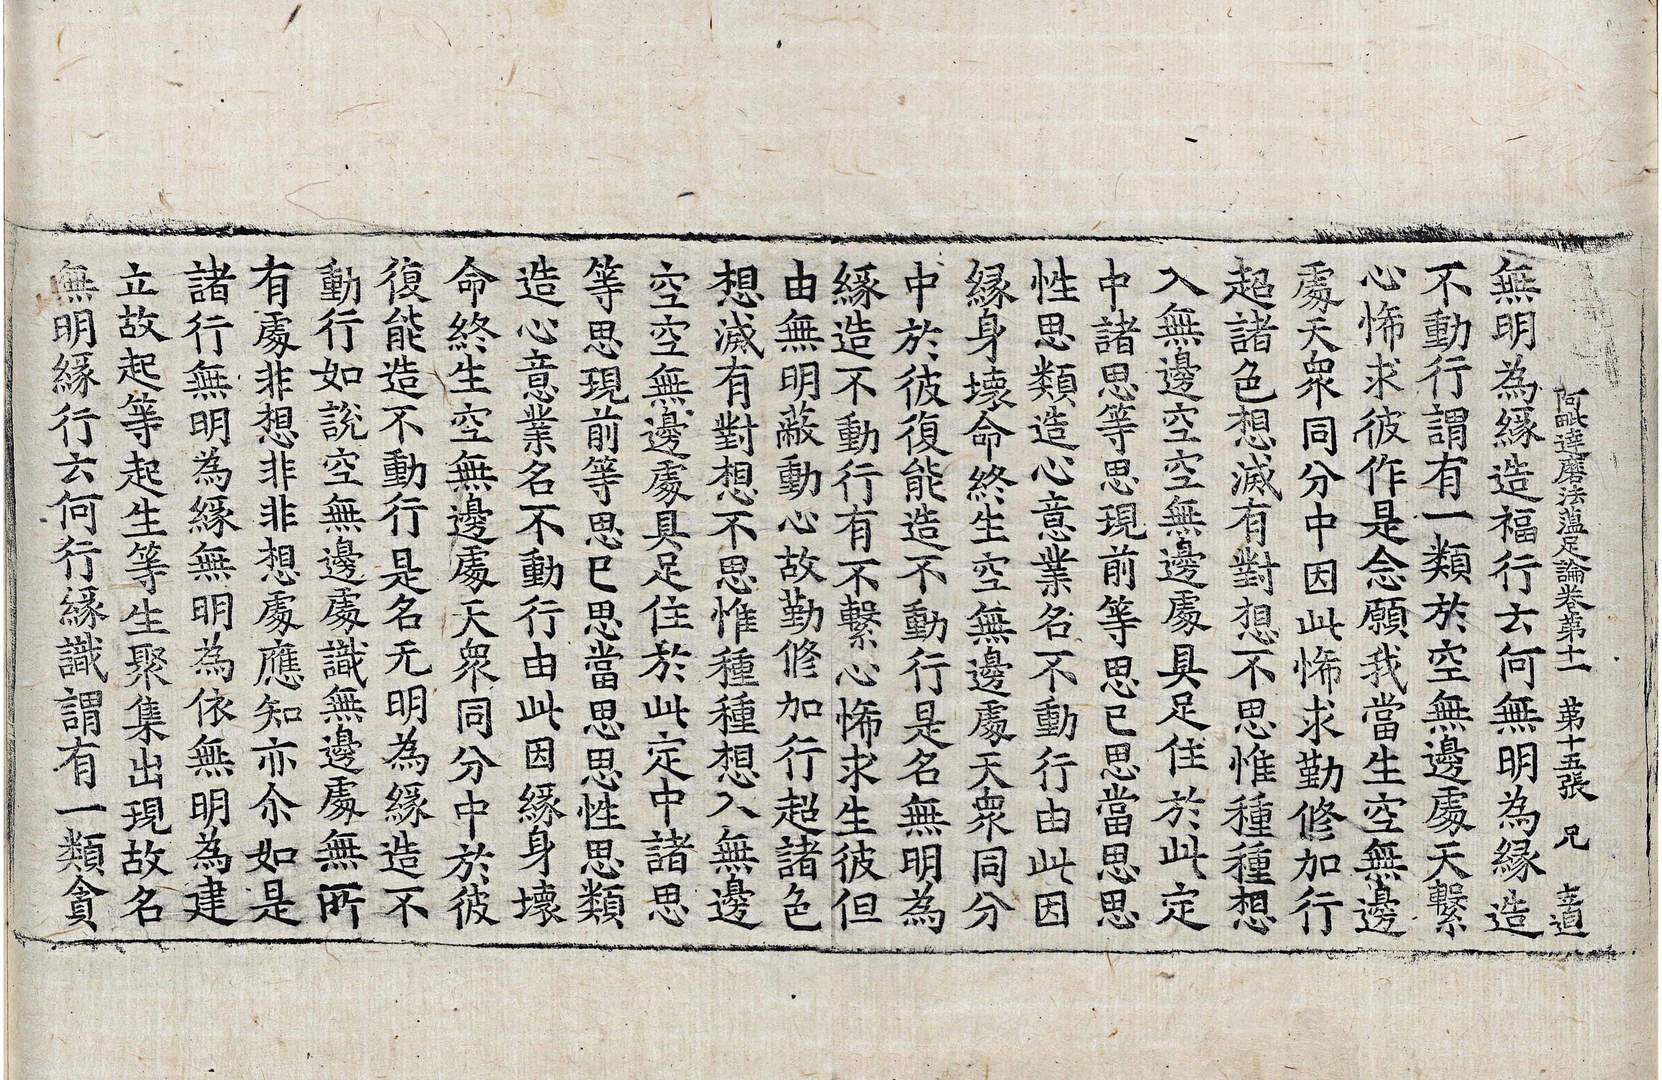 阿毗達磨法蘊足論卷第十一 第十五張 兄 道
無明為緣造福行云何無明為緣造
不動行謂有一類於空無邊處天繫
心悕求彼作是念願我當生空無邊
處天衆同分中因此悕求勤修加行
超諸色想滅有對想不思惟種種想
入無邊空空無邊處具足住於此定
中諸思等思現前等思已思當思思
性思類造心意業名不動行由此因
緣身壞命終生空無邊處天衆同分
中於彼復能造不動行是名無明為
緣造不動行有不繫心悕求生彼但
由無明蔽動心故勤修加行超諸色
想滅有對想不思惟種種想入無邊
空空無邊處具足住於此定中諸思
等思現前等思已思當思思性思類
造心意業名不動行由此因緣身壞
命終生空無邊處天衆同分中於彼
復能造不動行是名无明為緣造不
動行如說空無邊處識無邊處無所
有處非想非非想處應知亦尒如是
諸行無明為緣無明為依無明為建
立故起等起生等生聚集出現故名
無明緣行云何行緣識謂有一類貪